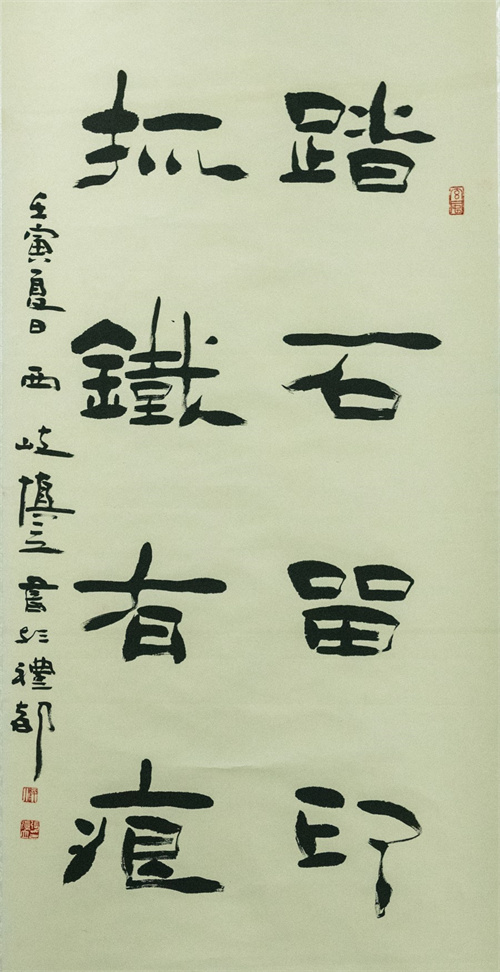 踏石留印
抓鐵有痕
壬寅夏日西岐慎之書於禮都